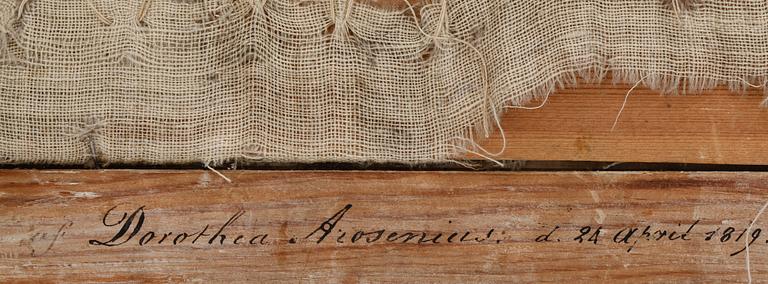 af Dorothea Arosenius: d. 24 April 1819.